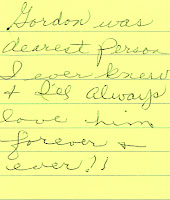 Gordon was
dearest Person
I ever knew
& I'll always
love him
forever &
ever!!